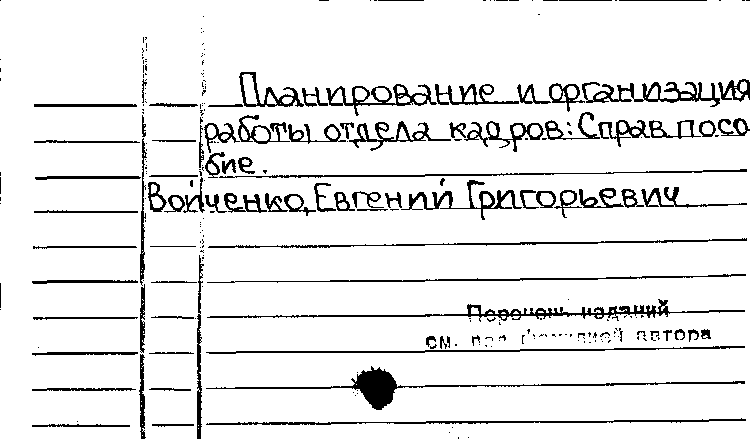 Планирование и организация
работы отдела кадров: Справ. посо
бие.
Войченко, Евгений Григорьевич
Перечень изданий
см. под фамилией автора